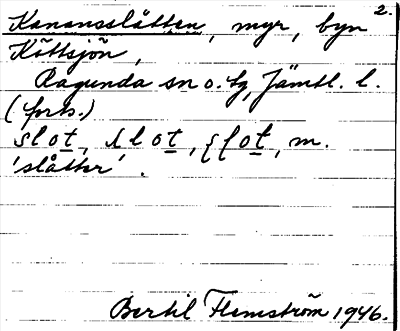 2.
Kanansslåtten, myr, byn
Köttsjön,
Ragunda sn o. tg, Jämtl. l.
(forts.)
slot, slot, m.
'slåtter'.
Bertil Flemström 1946.